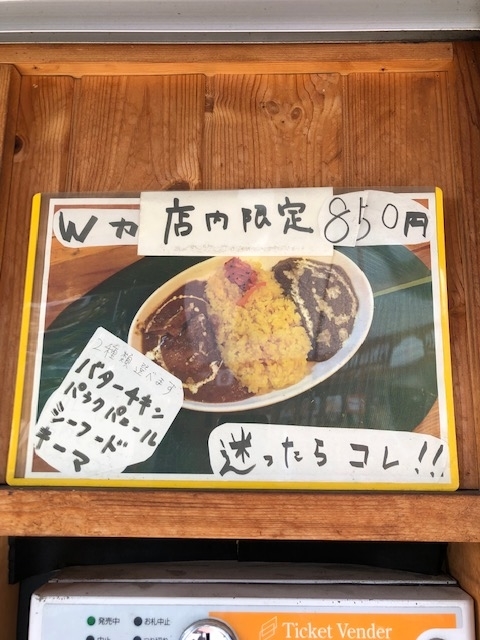 Wカ 店内限定 850円
2種類選べます
バターチキン
パラクパニール
シーフード
キーマ
迷ったらコレ!!
発売中 お札中止
Ticket Vender